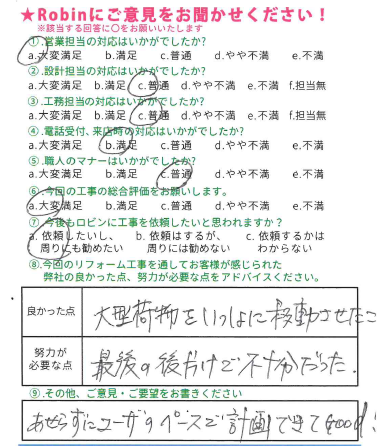 ★Robinにご意見をお聞かせください！
※該当する回答に〇をお願いいたします
①.営業担当の対応はいかがでしたか?
a.大変満足 b.満足 c.普通 d.やや不満 e.不満
②.設計担当の対応はいかがでしたか?
a.大変満足 b.満足 c.普通 d.やや不満 e.不満 f.担当無
③.工務担当の対応はいかがでしたか?
a.大変満足 b.満足 c.普通 d.やや不満 e.不満 f.担当無
④.電話受付、来店時の対応はいかがでしたか?
a.大変満足 b.満足 c.普通 d.やや不満 e.不満
⑤.職人のマナーはいかがでしたか?
a.大変満足 b.満足 c.普通 d.やや不満 e.不満
⑥.今回の工事の総合評価をお願いします。
a.大変満足 b.満足 c.普通 d.やや不満 e.不満
⑦.今後もロビンに工事を依頼したいと思われますか？
a. 依頼したいし、 b. 依頼はするが、 c. 依頼するかは
周りにも勧めたい 周りには勧めない わからない
⑧.今回のリフォーム工事を通してお客様が感じられた
弊社の良かった点、努力が必要な点をアドバイスください。
良かった点 大型荷物をいっしょに移動させたこ
努力が
必要な点 最後の後かけで不十分だった.
⑨.その他、ご意見・ご要望をお書きください
あせらずにユーザのペースで計画できてGood!